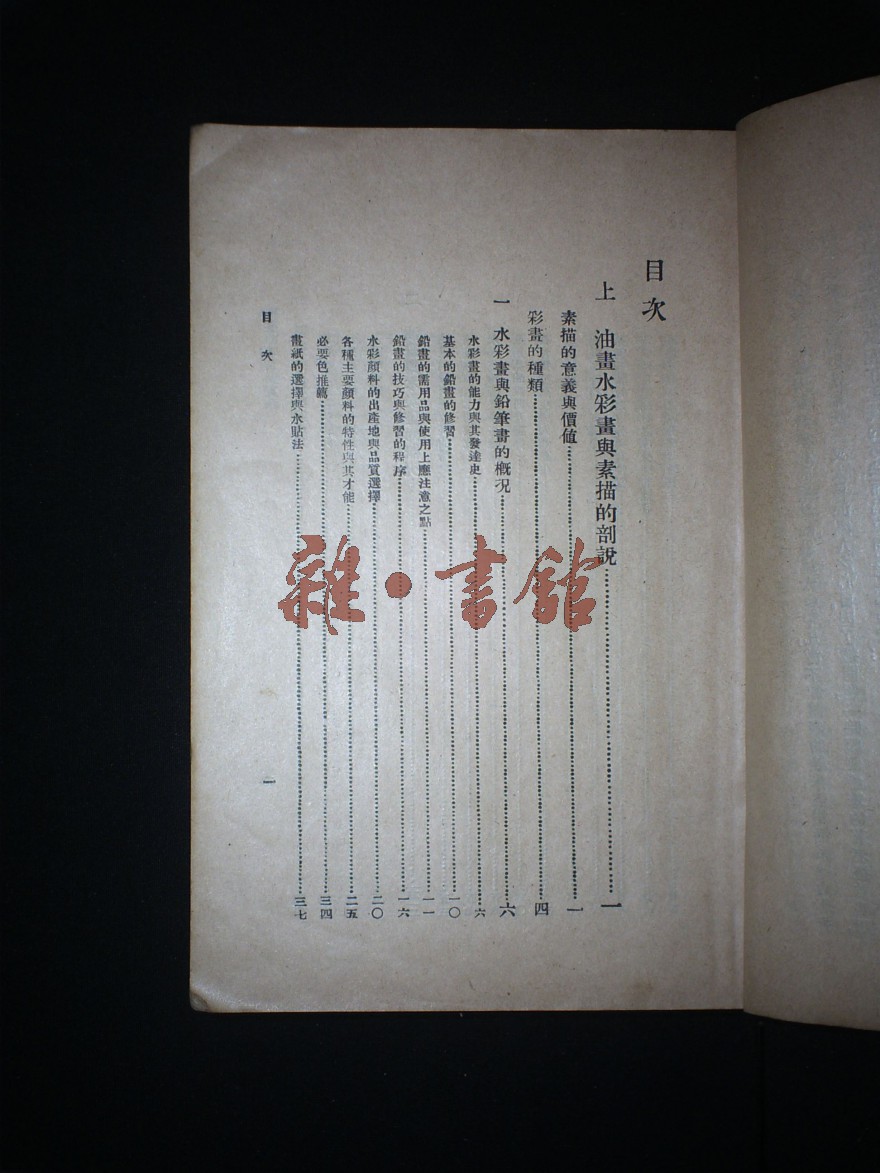 目次
上 油畫水彩畫與素描的剖說……一
素描的意義與價值……一
彩畫的種類……四
一 水彩畫與鉛筆畫的概況……六
水彩畫的能力與其發達史……六
基本的鉛畫的修習……一〇
鉛畫的需用品與使用上應注意之點……一一
鉛畫的技巧與修習的程序……一六
水彩顏料的出產地與品質選擇……二〇
各種主要顏料的特性與其才能……二五
必要色推薦……三四
畫紙的選擇與水貼法……三七
目次
一
雜·書館